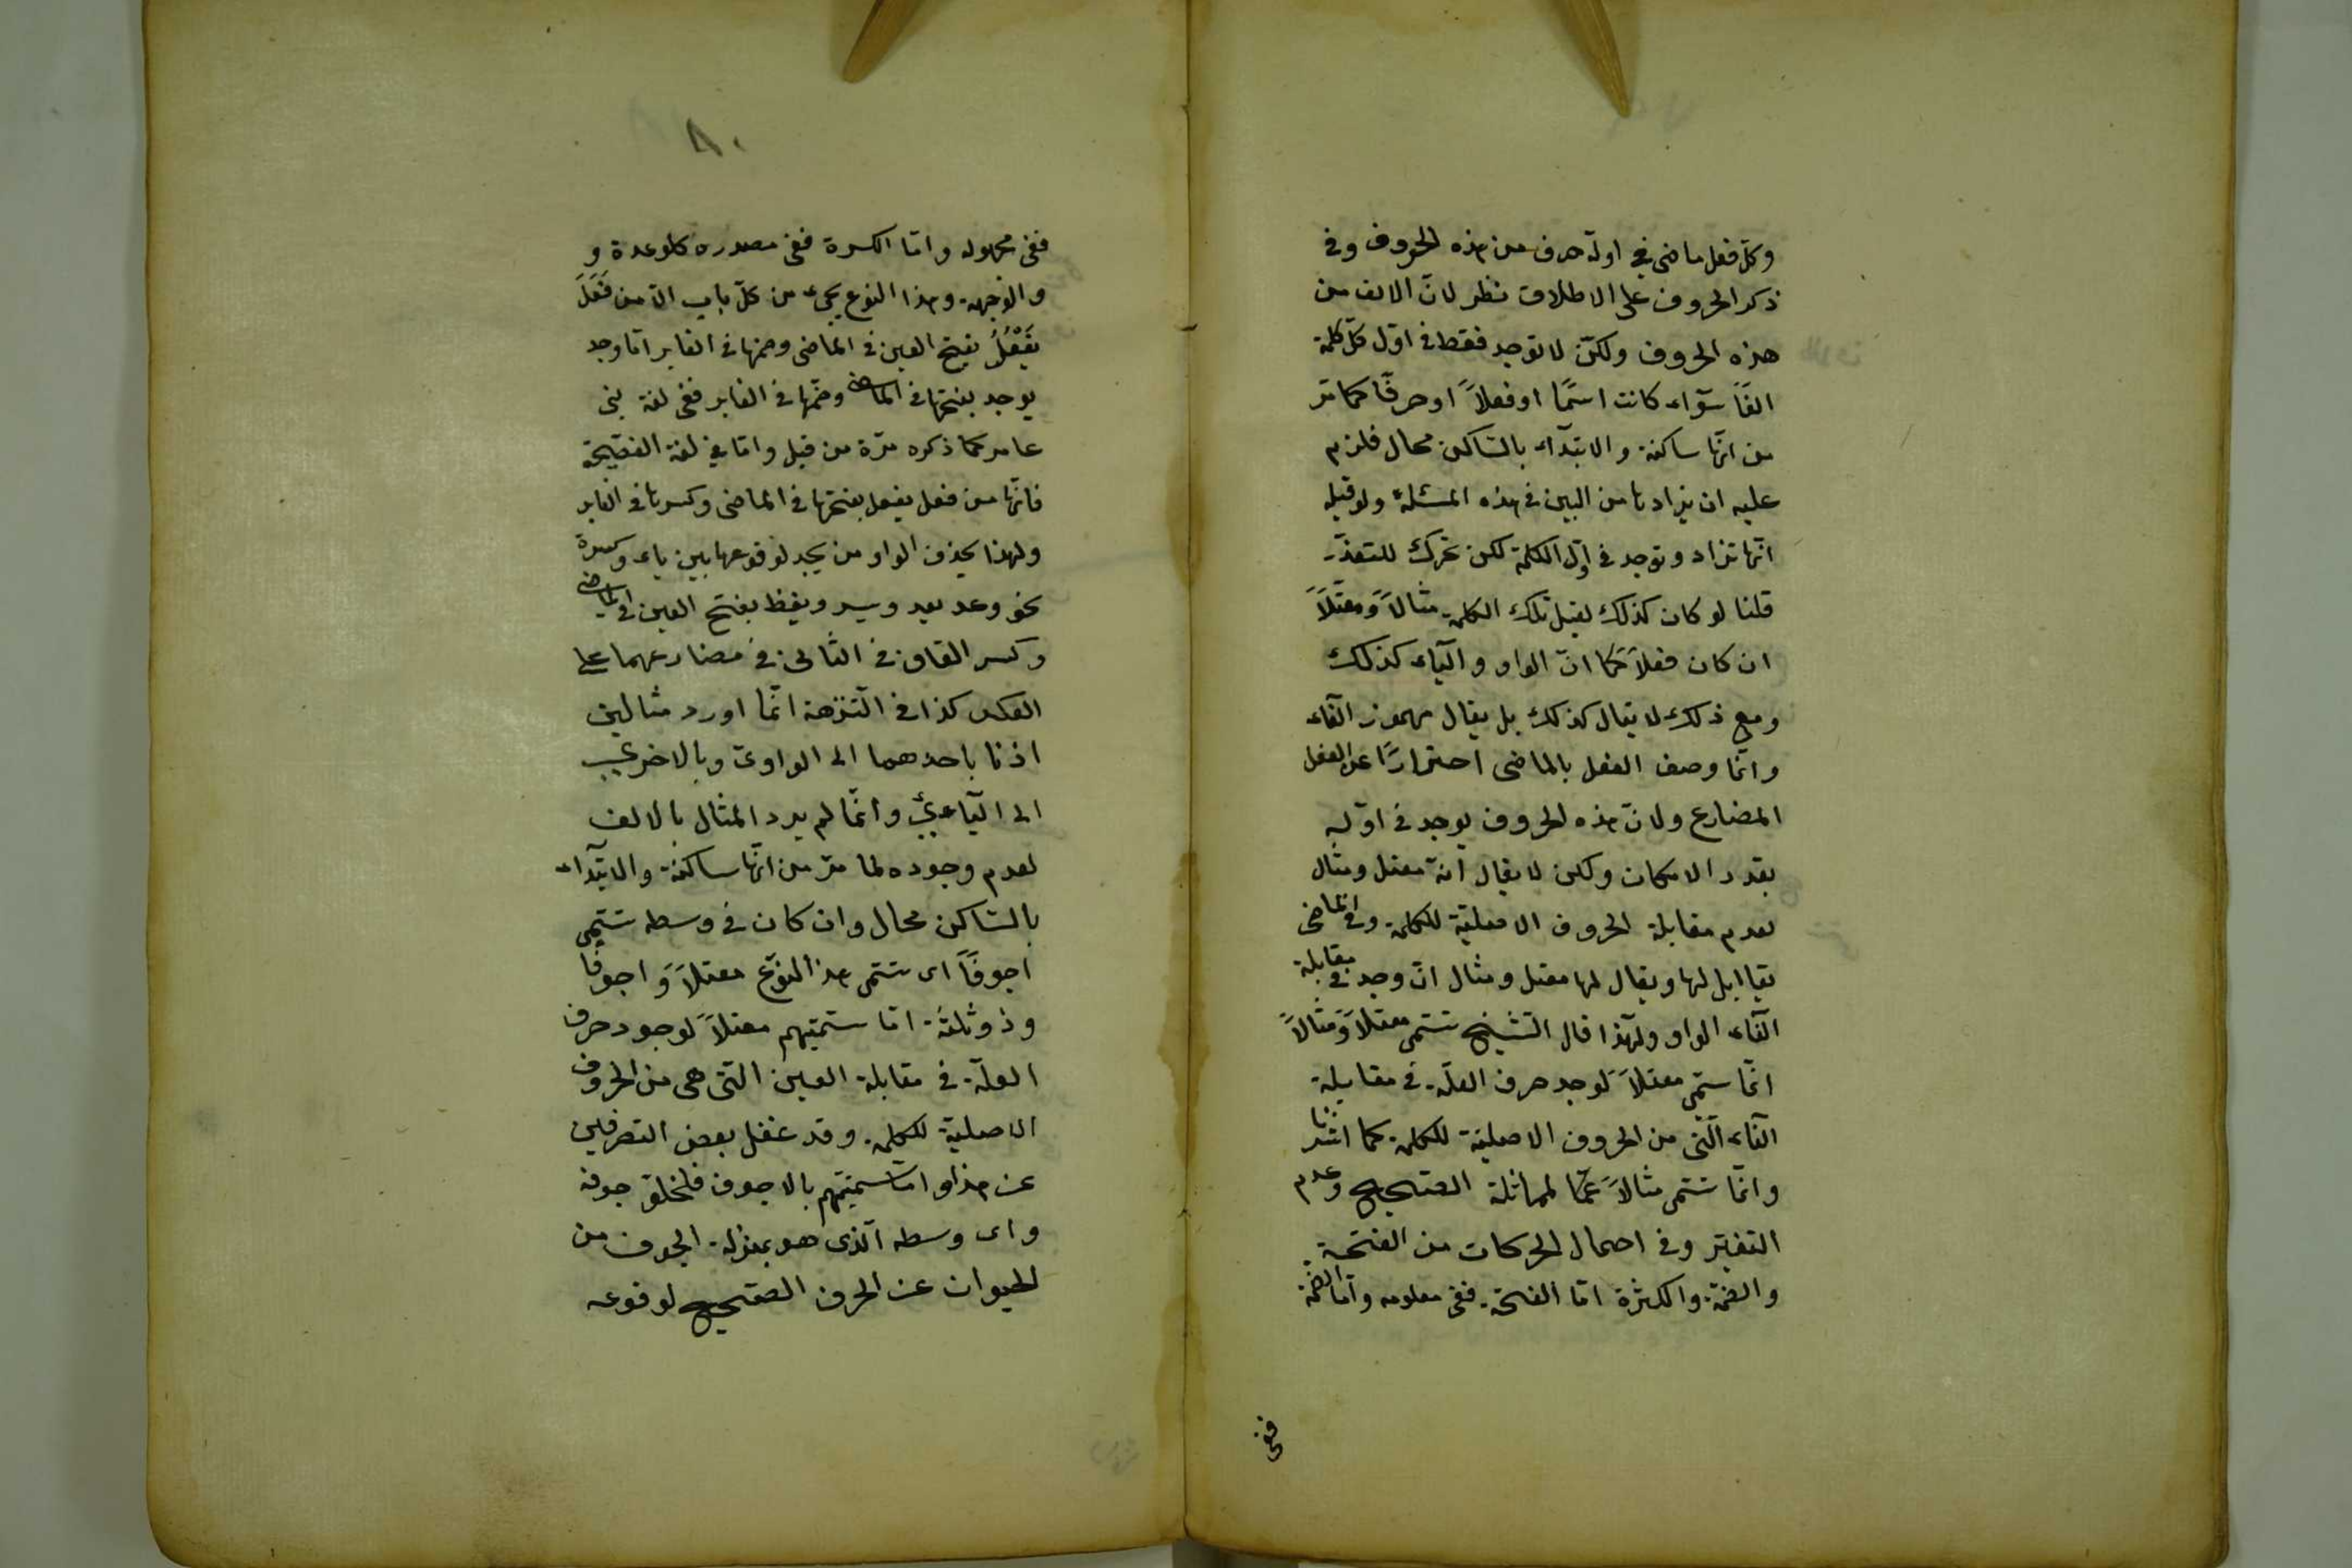 وكلّ فعل ماضى فى اوله حرف من هذه الحروف وفى
ذكر الحروف على الاطلاق نظر لانّ الالف من
هذه الحروف ولكن لا توجد فقط فى اوّل كلّ كلمة
الفًا سوآء كانت اسمًا او فعلاً او حرفًا كما مرّ
من انّها ساكنة والابتدآء بالسّاكن محال فلزم
عليه ان يزاد ما من البين فى هذه المسئلة ولو قيل
انّها تزاد وتوجد فى اوّل الكلمة لكن تحرك للتعذّر
قلنا لو كان كذلك لقيل تلك الكلمة مثالاً ومعتلاً
ان كان فعلاً كما انّ الواو والياء كذلك
ومع ذلك لا يقال كذلك بل يقال مهموز الفآء
وانّما وصف الفعل بالماضى احترازًا عن الفعل
المضارع ولانّ هذه الحروف يوجد فى اوّله
بقدر الامكان ولكن لا يقال انّه معتل ومثال
لعدم مقابلة الحروف الاصليّة للكلمة وفى الماضى
يقاابل لها ويقال لها معتل ومثال ان وجد فى مقابلة
الفآء الواو ولهذا قال الشّيخ تسمّى معتلاً ومثالاً
انّما سمّى معتلاً لوجد حرف العلّة فى مقابلة
الفآء الّتى من الحروف الاصليّة للكلمة كما اشرنا
وانّما تسمّى مثالاً لمماثلة الصّحيح وعدم
التغيّر وفى احتمال الحركات من الفتحة
والضمّة والكثرة امّا الفتحة ففى معلومه وامّا الضمّة
ففى
٨٠
ففى مجهوله وامّا الكسرة ففى مصدره كالوعدة و
والوجهة وهذا النوع يجىء من كلّ باب الاّ من فَعَلَ
يَفْعُلُ بفتح العين فى الماضى وضمها فى الغابر امّا وجد
يوجد بفتحها فى الماضى وضمّها فى الغابر ففى لغة بنى
عامر كما ذكره مرّة من قبل وامّا فى لغة الفصيحة
فانّها من فعل يفعل بفتحها فى الماضى وكسرها فى الغابر
ولهذا يحذف الواو من يجد لوقوعها بين ياء وكسرة
نحو وعد يعد ويسر ويقظ بفتح العين فى الماضى
وكسر القاف فى الثّانى فى مضارعهما على
العكس كذا فى النّزهة انّما اورد مثالين
اذنا باحدهما الى الواوىّ وبالاخر
الى اليآءىّ وانّما لم يرد المثال بالالف
لعدم وجوده لما مرّ من انّها ساكنة والابتدآء
بالسّاكن محال وان كان فى وسطه تسمّى
اجوفًا اى تسمّى هذا النّوع معتلاً واجوفًا
وذو ثلثة امّا سمّيتهم معتلاً لوجود حرف
العلّة فى مقابلة العين الّتى هى من الحروف
الاصليّة للكلمة وقد غفل بعض التصرفين
عن هذا وامّا تسميتهم بالاجوف فلخلو جوفه
واى وسطه الّذى هو بمنزلة الجوف من
الحيوان عن الحرف الصّحيح لوقوعه